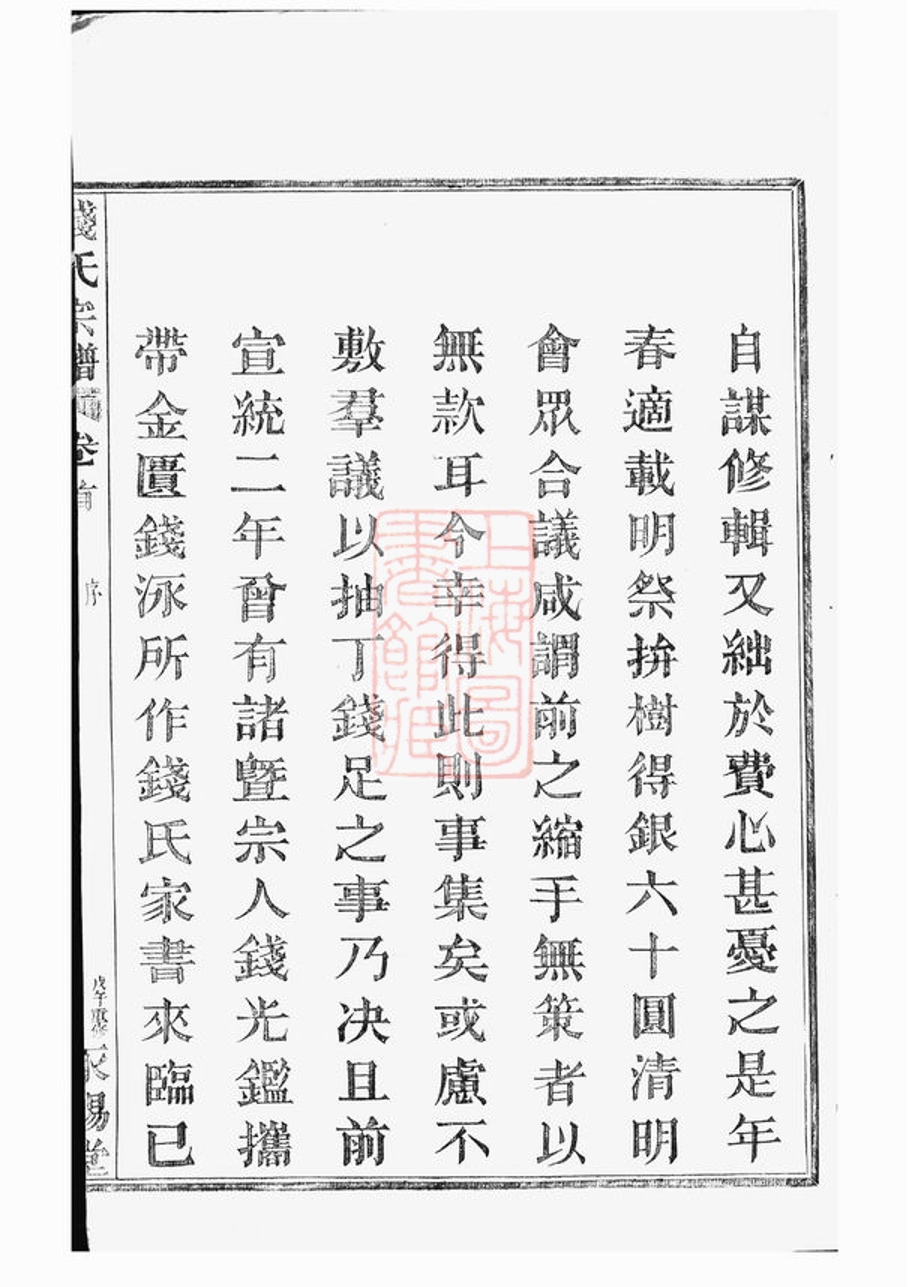 自謀修輯又絀於費心甚憂之是年
春適載明祭拚樹得銀六十圓清明
會眾合議咸謂前之縮手無策者以
無款耳今幸得此則事集矣或慮不
敷羣議以抽丁錢足之事乃决且前
宣統二年曾有諸暨宗人錢光鑑攜
帶金匱錢泳所作錢氏家書來臨已
錢氏宗譜
卷首
序
戊午重修
錫堂
上海圖
書館藏